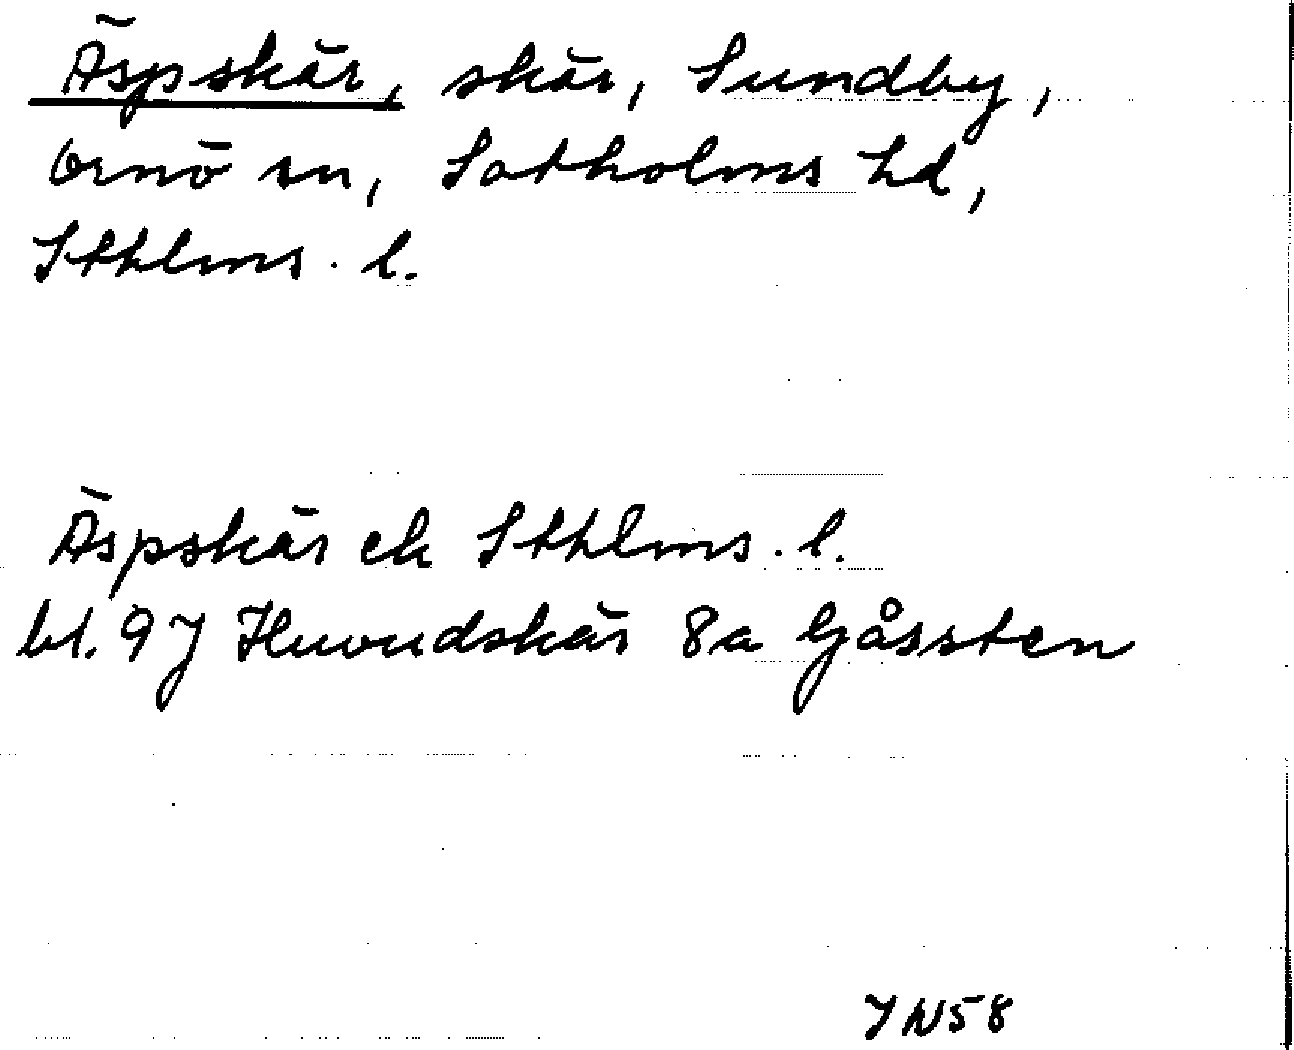 Äspskär, skär, Sundby,
Ornö sn, Sotholms hd,
Sthlms. l.
Äspskär ek Sthlms. l.
bl. 9J Huvudskär 8a Gåssten
JN58